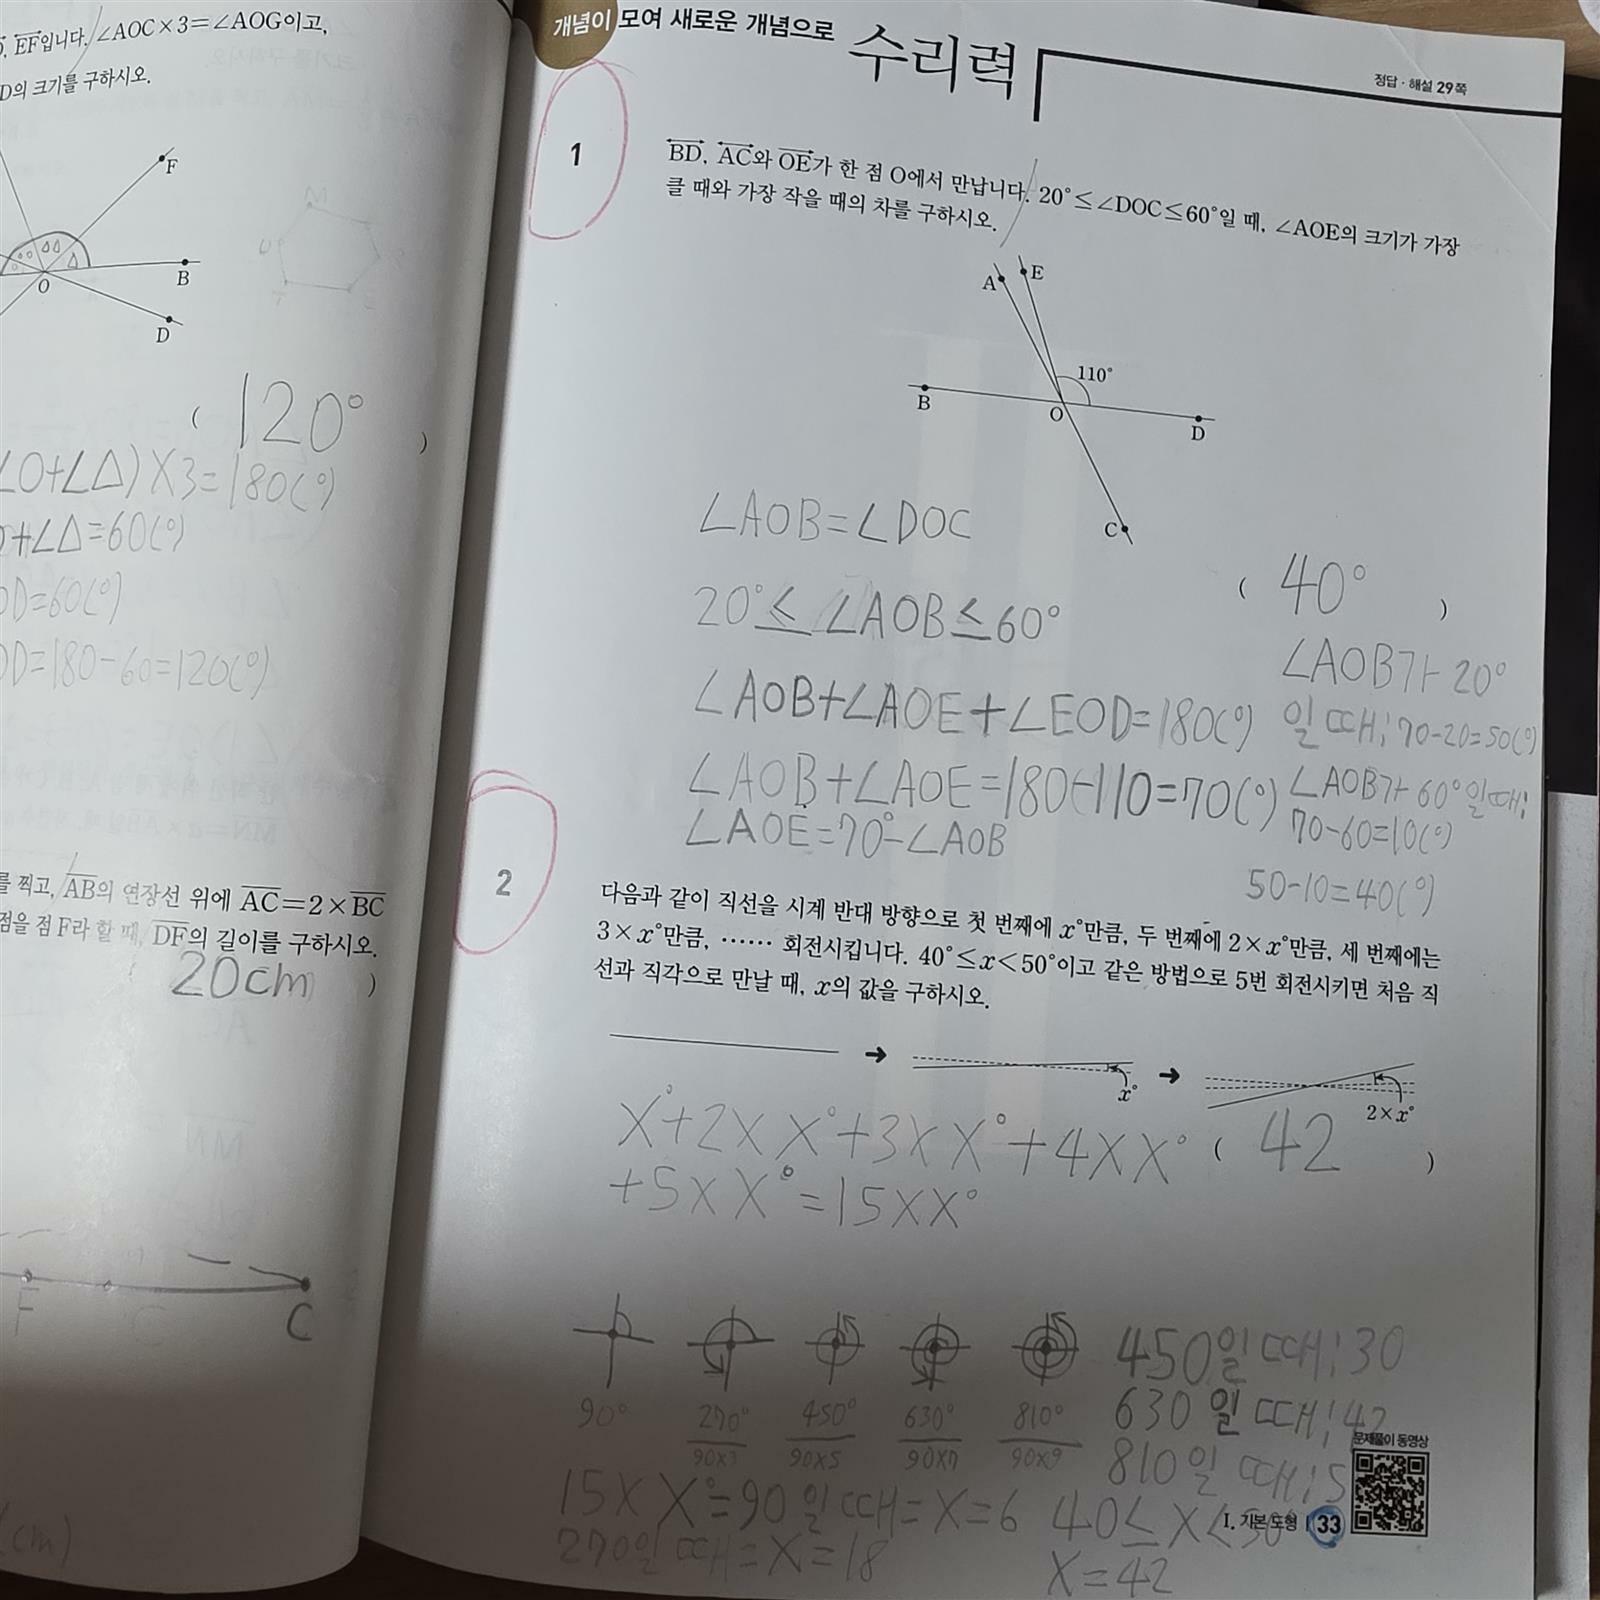 EF입니다. ∠AOC×3=∠AOG이고,
D의 크기를 구하시오.
F
B
O
D
( 120° )
∠O+∠△)×3=180(°)
+∠△=60(°)
OD=60(°)
OD=180-60=120(°)
를 찍고, AB의 연장선 위에 AC=2×BC
점을 점 F라 할 때, DF의 길이를 구하시오.
20cm )
F
C
(cm)
개념이 모여 새로운 개념으로 수리력
정답·해설 29쪽
1
BD, AC와 OE가 한 점 O에서 만납니다. 20°≤∠DOC≤60°일 때, ∠AOE의 크기가 가장
클 때와 가장 작을 때의 차를 구하시오.
A E
110°
B O D
C
∠AOB=∠DOC
( 40° )
20°≤∠AOB≤60°
∠AOB+∠AOE+∠EOD=180(°)
∠AOB+∠AOE=180-110=70(°)
∠AOE=70°-∠AOB
∠AOB가 20°
일 때; 70-20=50(°)
∠AOB가 60°일 때;
70-60=10(°)
50-10=40(°)
2
다음과 같이 직선을 시계 반대 방향으로 첫 번째에 x°만큼, 두 번째에 2×x°만큼, 세 번째에는
3×x°만큼, …… 회전시킵니다. 40°≤x<50°이고 같은 방법으로 5번 회전시키면 처음 직
선과 직각으로 만날 때, x의 값을 구하시오.
→ x° → 2×x°
x°+2×x°+3×x°+4×x°
+5×x°=15×x°
( 42 )
90° 270° 450° 630° 810°
90×3 90×5 90×7 90×9
450일 때; 30
630일 때; 42
810일 때; 5
15×x°=90일 때=x=6
270일 때=x=18
40≤x<50
x=42
문제풀이 동영상
I. 기본 도형 33